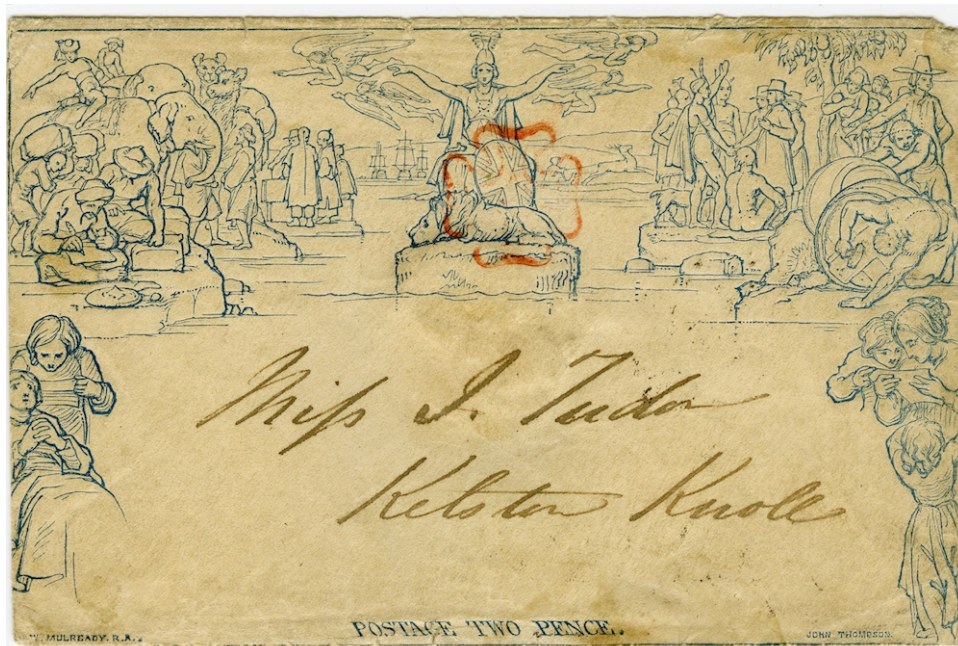 Miss J. Tudor
Kelston Knoll
W. MULREADY. R.A.
POSTAGE TWO PENCE.
JOHN THOMPSON.